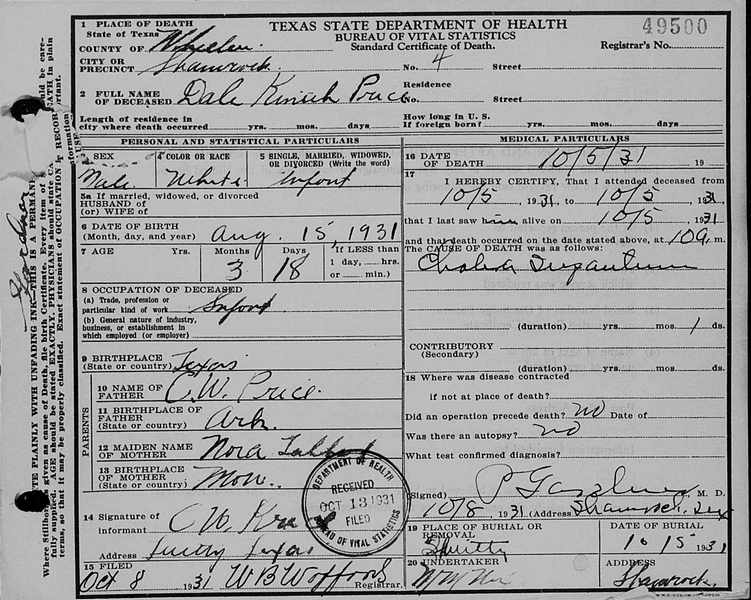 49500
1 PLACE OF DEATH
TEXAS STATE DEPARTMENT OF HEALTH
State of Texas
BUREAU OF VITAL STATISTICS
COUNTY OF Wheeler
Standard Certificate of Death.
Registrar's No.
CITY OR PRECINCT Shamrock No. 4 Street
2 FULL NAME OF DECEASED Dale Price
Residence
No. Street
Length of residence in city where death occurred yrs. mos. days
How long in U. S. If foreign born? yrs. mos. days
PERSONAL AND STATISTICAL PARTICULARS
3 SEX
Male
4 COLOR OR RACE
White
5 SINGLE, MARRIED, WIDOWED, OR DIVORCED (Write the word)
Infant
5a If married, widowed, or divorced
HUSBAND OF
(or) WIFE OF
6 DATE OF BIRTH
(Month, day, and year) Aug. 15 1931
7 AGE Years Months Days
3 18
If LESS than
1 day, hrs.
or min.)
8 OCCUPATION OF DECEASED
(a) Trade, profession or
particular kind of work Infant
(b) General nature of industry,
business, or establishment in
which employed (or employer)
9 BIRTHPLACE
(State or country) Texas
PARENTS
10 NAME OF FATHER C.W. Price
11 BIRTHPLACE OF FATHER
(State or country) Ark.
12 MAIDEN NAME OF MOTHER Nora
13 BIRTHPLACE OF MOTHER
(State or country)
14 Signature of
informant C. W.
Address Texas
15 FILED
Oct 8 1931 W B Wofford Registrar.
MEDICAL PARTICULARS
16 DATE OF DEATH 10/5/31 19
17
I HEREBY CERTIFY, That I attended deceased from
10/5 1931, to 10/5 1931
that I last saw him alive on 10/5 1931
and that death occurred on the date stated above, at m.
The CAUSE OF DEATH was as follows:
Cholera
(duration) yrs. mos. 1 ds.
CONTRIBUTORY
(Secondary)
(duration) yrs. mos. ds.
18 Where was disease contracted
if not at place of death?
Did an operation precede death? no Date of
Was there an autopsy? no
What test confirmed diagnosis?
(Signed) M. D.
10/8, 1931 (Address) Shamrock, Tex
19 PLACE OF BURIAL OR REMOVAL
DATE OF BURIAL
1931
20 UNDERTAKER
ADDRESS
Shamrock
DEPARTMENT OF HEALTH
RECEIVED
OCT 13 1931
FILED
BUREAU OF VITAL STATISTICS